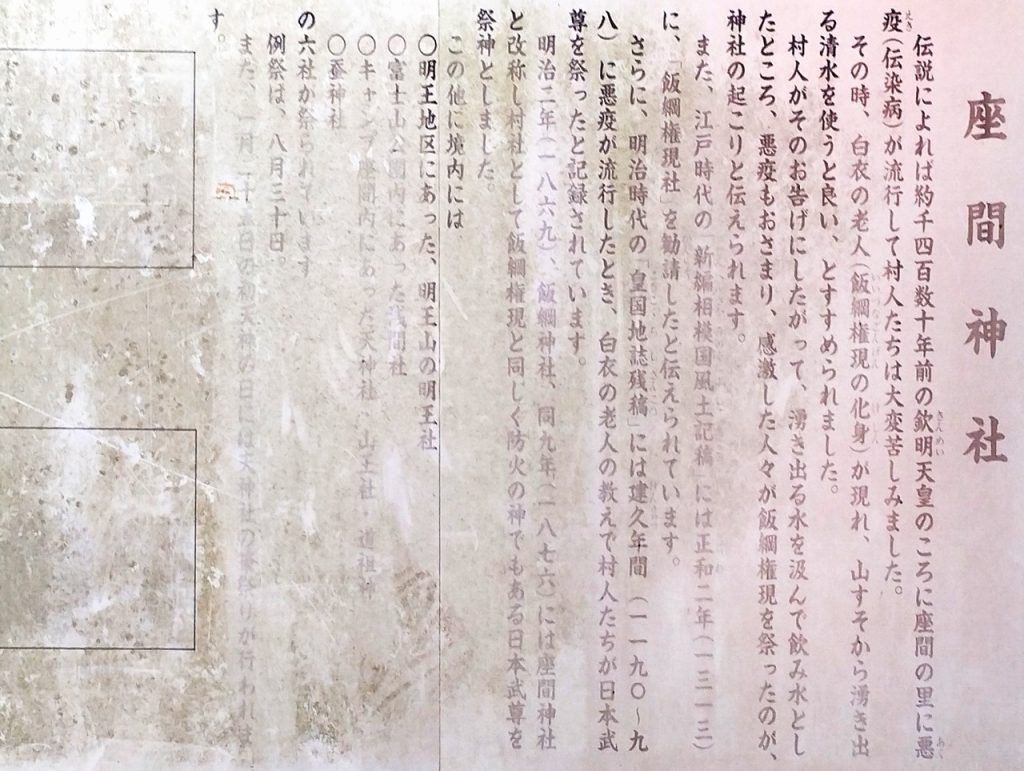 座間神社
伝説によれば約千四百数十年前の欽明天皇のころに座間の里に悪
疫(伝染病)が流行して村人たちは大変苦しみました。
その時、白衣の老人(飯綱権現の化身)が現れ、山すそから湧き出
る清水を使うと良い、とすすめられました。
村人がそのお告げにしたがって、湧き出る水を汲んで飲み水とし
たところ、悪疫もおさまり、感激した人々が飯綱権現を祭ったのが、
神社の起こりと伝えられます。
また、江戸時代の「新編相模国風土記稿」には正和二年(一三一三)
に、「飯綱権現社」を勧請したと伝えられています。
さらに、明治時代の「皇国地誌残稿」には建久年間(一一九〇〜九
八)に悪疫が流行したとき、白衣の老人の教えで村人たちが日本武
尊を祭ったと記録されています。
明治二年(一八六九)、飯綱神社、同九年(一八七六)には座間神社
と改称し村社として飯綱権現と同じく防火の神でもある日本武尊を
祭神としました。
この他に境内には
〇明王地区にあった、明王山の明王社
〇富士山公園内にあった浅間社
〇キャンプ座間内にあった天神社・山王社・道祖神
〇蚕神社
の六社が祭られています
例祭は、八月三十日。
また、一月二十五日の初天神の日には天神社の祭りが行われま
す。